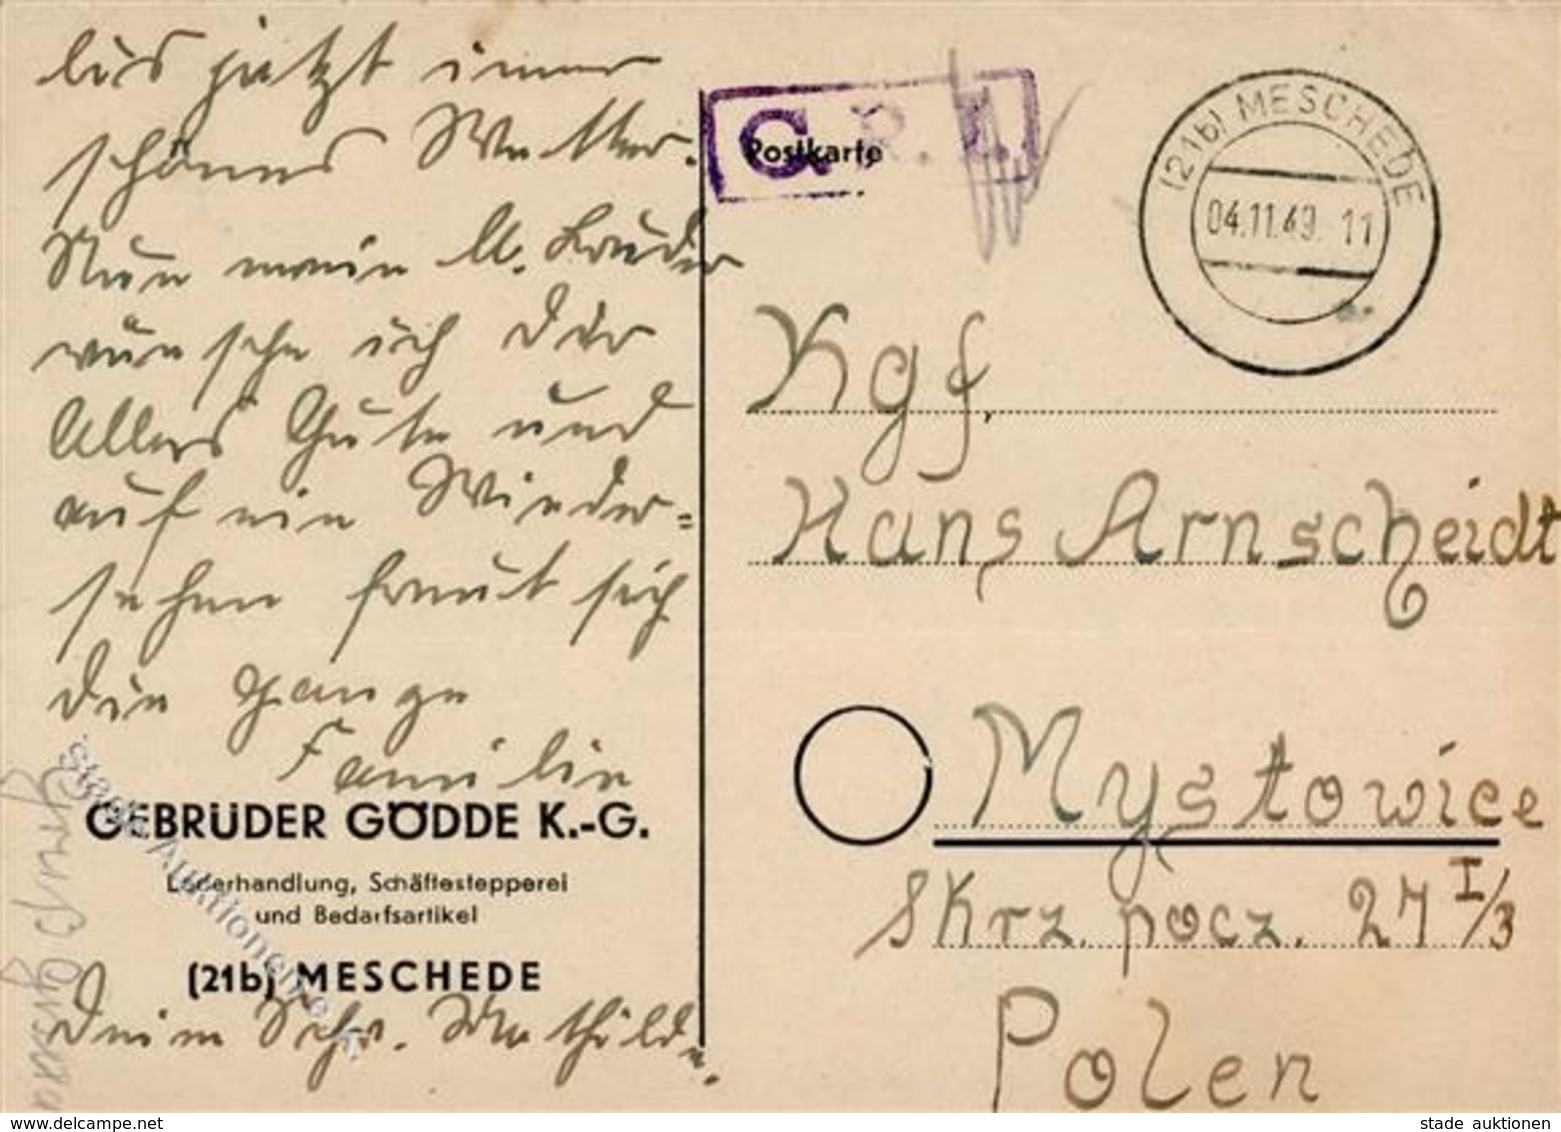 bis jetzt immer
schönes Wetter.
Nun mein ll. Bruder
wünsche ich Dir
Alles Gute und
auf ein Wieder=
sehen freut sich
die ganze
Familie
GEBRÜDER GÖDDE K.-G.
Lederhandlung, Schäftestepperei
und Bedarfsartikel
(21b) MESCHEDE
Deine Schw. Mathilde.
Postkarte
(21b) MESCHEDE
04.11.49. 11
Kgf.
Hans Arnscheidt
Mystowice
Skrz. pocz. 27 I/3
Polen
stade Auktionen
www.delcampe.net
stade auktionen